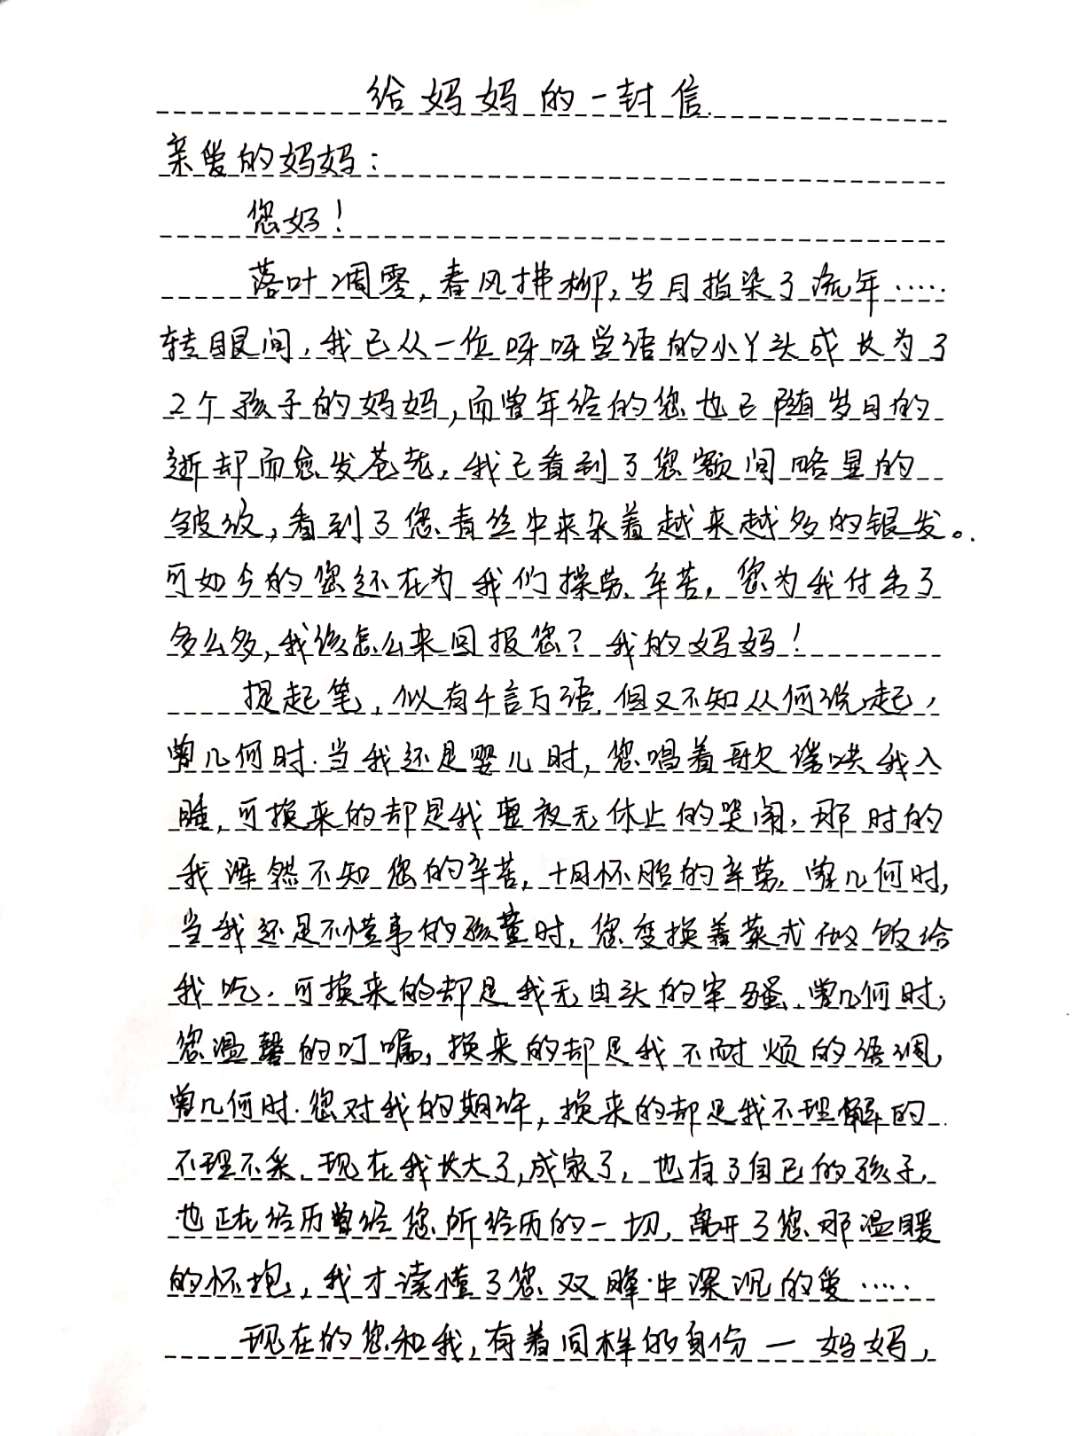 给妈妈的一封信
亲爱的妈妈：
您好！
落叶凋零，春风拂柳，岁月指染了流年……
转眼间，我已从一位呀呀学语的小丫头成长为了
2个孩子的妈妈，而曾年经的您也已随岁月的
逝却而愈发苍老，我已看到了您额间略显的
皱纹，看到了您青丝中来杂着越来越多的银发。
可如今的您还在为我们操劳、辛苦，您为我付出了
多么多，我该怎么来回报您？我的妈妈！
提起笔，似有千言万语，但又不知从何说起，
曾几何时.当我还是婴儿时，您唱着歌谣哄我入
睡，可换来的却是我整夜无休止的哭闹，那时的
我浑然不知您的辛苦，十月怀胎的辛劳，曾几何时，
当我还是不懂事的孩童时，您变换着菜式做饭给
我吃，可换来的却是我无由头的牢骚，曾几何时，
您温馨的叮嘱，换来的却是我不耐烦的语调，
曾几何时.您对我的期许，换来的却是我不理解的
不理不采，现在我长大了，成家了，也有了自己的孩子，
也正在经历曾经您所经历的一切，离开了您那温暖
的怀抱，我才读懂了您双眸中深沉的爱……
现在的您和我，有着同样的身份一妈妈，